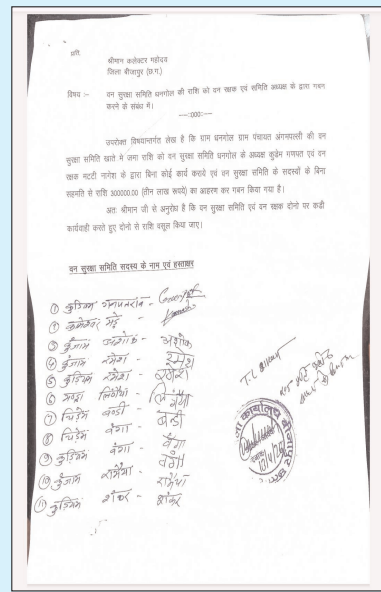 प्रति,
श्रीमान कलेक्टर महोदय
जिला बीजापुर (छ.ग.)
विषय :- वन सुरक्षा समिति धनगोल की राशि को वन रक्षक एवं समिति अध्यक्ष के द्वारा गबन
करने के संबंध में।
---:000:---
उपरोक्त विषयान्तर्गत लेख है कि ग्राम धनगोल ग्राम पंचायत अंगमपल्ली की वन
सुरक्षा समिति खाते मे जमा राशि को वन सुरक्षा समिति धनगोल के अध्यक्ष कुडेम गणपत एवं वन
रक्षक मटटी नागेश के द्वारा बिना कोई कार्य कराये एवं वन सुरक्षा समिति के सदस्यों के बिना
सहमति से राशि 300000.00 (तीन लाख रूपये) का आहरण कर गबन किया गया है।
अतः श्रीमान जी से अनुरोध है कि वन सुरक्षा समिति एवं वन रक्षक दोनो पर कड़ी
कार्यवाही करते हुए दोनो से राशि वसूल किया जाए।
वन सुरक्षा समिति सदस्य के नाम एवं हस्ताक्षर
① कुड़ियम गनपतराव -
②
③ कुंजाम अशोक - अशोक
④ कुंजाम रमेश - रमेश
⑤ कुड़ियम
⑥
⑦ चिडेम बन्डी - बन्डी
⑧ चिडेम गंगा -
⑨ कुड़ियम गंगा - गंगा
⑩ कुंजाम रामैया - रामैया
⑪ कुड़ियम शंकर - शंकर
T.L